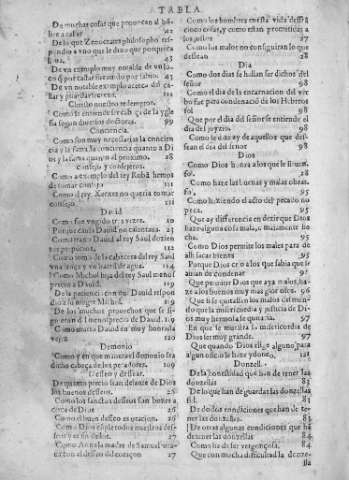 TABLA.
De muchas cosas que prouocan al hõ
bre a casar 42
De lo que Zenocrates philosopho res
pondio a vno que le dixo que porque no
43
De vn exemplo muy notable de
43
De vn notable exemplo acerca del ca
sar y guardar 
Christo nuestro redemptor.
Como se entiende ser cabeça de la ygle
sia segun diuersos doctores. 99
Conciencia.
Como son muy necessarias la concien
cia y la fama la conciencia quanto a Di
os y la fama quanto al proximo. 28
Consejo y consejeros.
Como a exemplo del rey Robã hemos
de tomar consejo 31
Como el rey Xerxes no queria tomar
consejo. 31
Dauid
Como fue vngido tres vezes. 20
Porque causa Dauid no 23
Como trato Dauid al rey Saul
112
Como tomo de la cabecera del rey Saul
vna lança y vn barril de agua. 114
Como Michol hija del rey Saul menos
precio a Dauid. 119
De la paciencia con que Dauid respon
dio a su muger Michol 119
De los muchos prouechos que se si
guieron del menosprecio de Dauid. 119
Como murio Dauid en muy honrada
vejez 120
Demonio
Como y en que manera el demonio sea
dicho cabeça de los peccadores. 109
Desseo y dessear.
De quanto precio sean delante de Dios
los buenos desseos. 26
Como los sanctos desseos son bozes a
cerca de Dios 26
Como el buen desseo es oracion. 26
Como Dios cumple todos nuestros des
seos y es fin dellos. 27
Como Anna la madre de Samuel oraua
con el desseo del coraçon 27
Como los hombres en esta vida dessean
cinco cosas, y como estan prometidas a
los justos 27
Como los malos no consiguen lo que
dessean 28
Dia
Como dos dias se hallan ser dichos del
señor 98
Como el dia de la encarnacion del ver
bo fue para condenacion de los Hebreos
98
Que por el dia del señor se entiende el
dia del juyzio. 98
Como se dize ay de aquellos que des
sean el dia del señor 98
Dios
Como Dios honra a los que le siruen
28
Como haze las buenas y malas obras.
95
Como haziendo el acto del peccado no
pecca. 95
Que ay differencia en dezir que Dios
haze alguna cosa mala, o malamente lo
haze. 95
Como Dios permite los males para de
alli sacar bienes 95
Porque Dios crio a los que sabia que se
auian de condenar 92
Que permitir Dios que aya malos, ha
ze a los buenos muy mas gloriosos. 96
Que si se quitassen los malos del mun
do que la misericordia y justicia de Di
os muy hermosa se quitaria. 97
En que se muestra la misericordia de
Dios ser muy grande. 97
Que quando Dios elige alguno para
algun officio le haze ydoneo. 121
Donzella.
De la honestidad que han de tener las
donzellas 81
De lo que han de guardar las donzellas
83
De dos condiciones que han de te
ner las donzellas. 83
De otras algunas condiciones que hã
de tener las donzellas. 84
Como ha de ser vergonçosa. 84
Que con mucha difficultad la donze-
lla